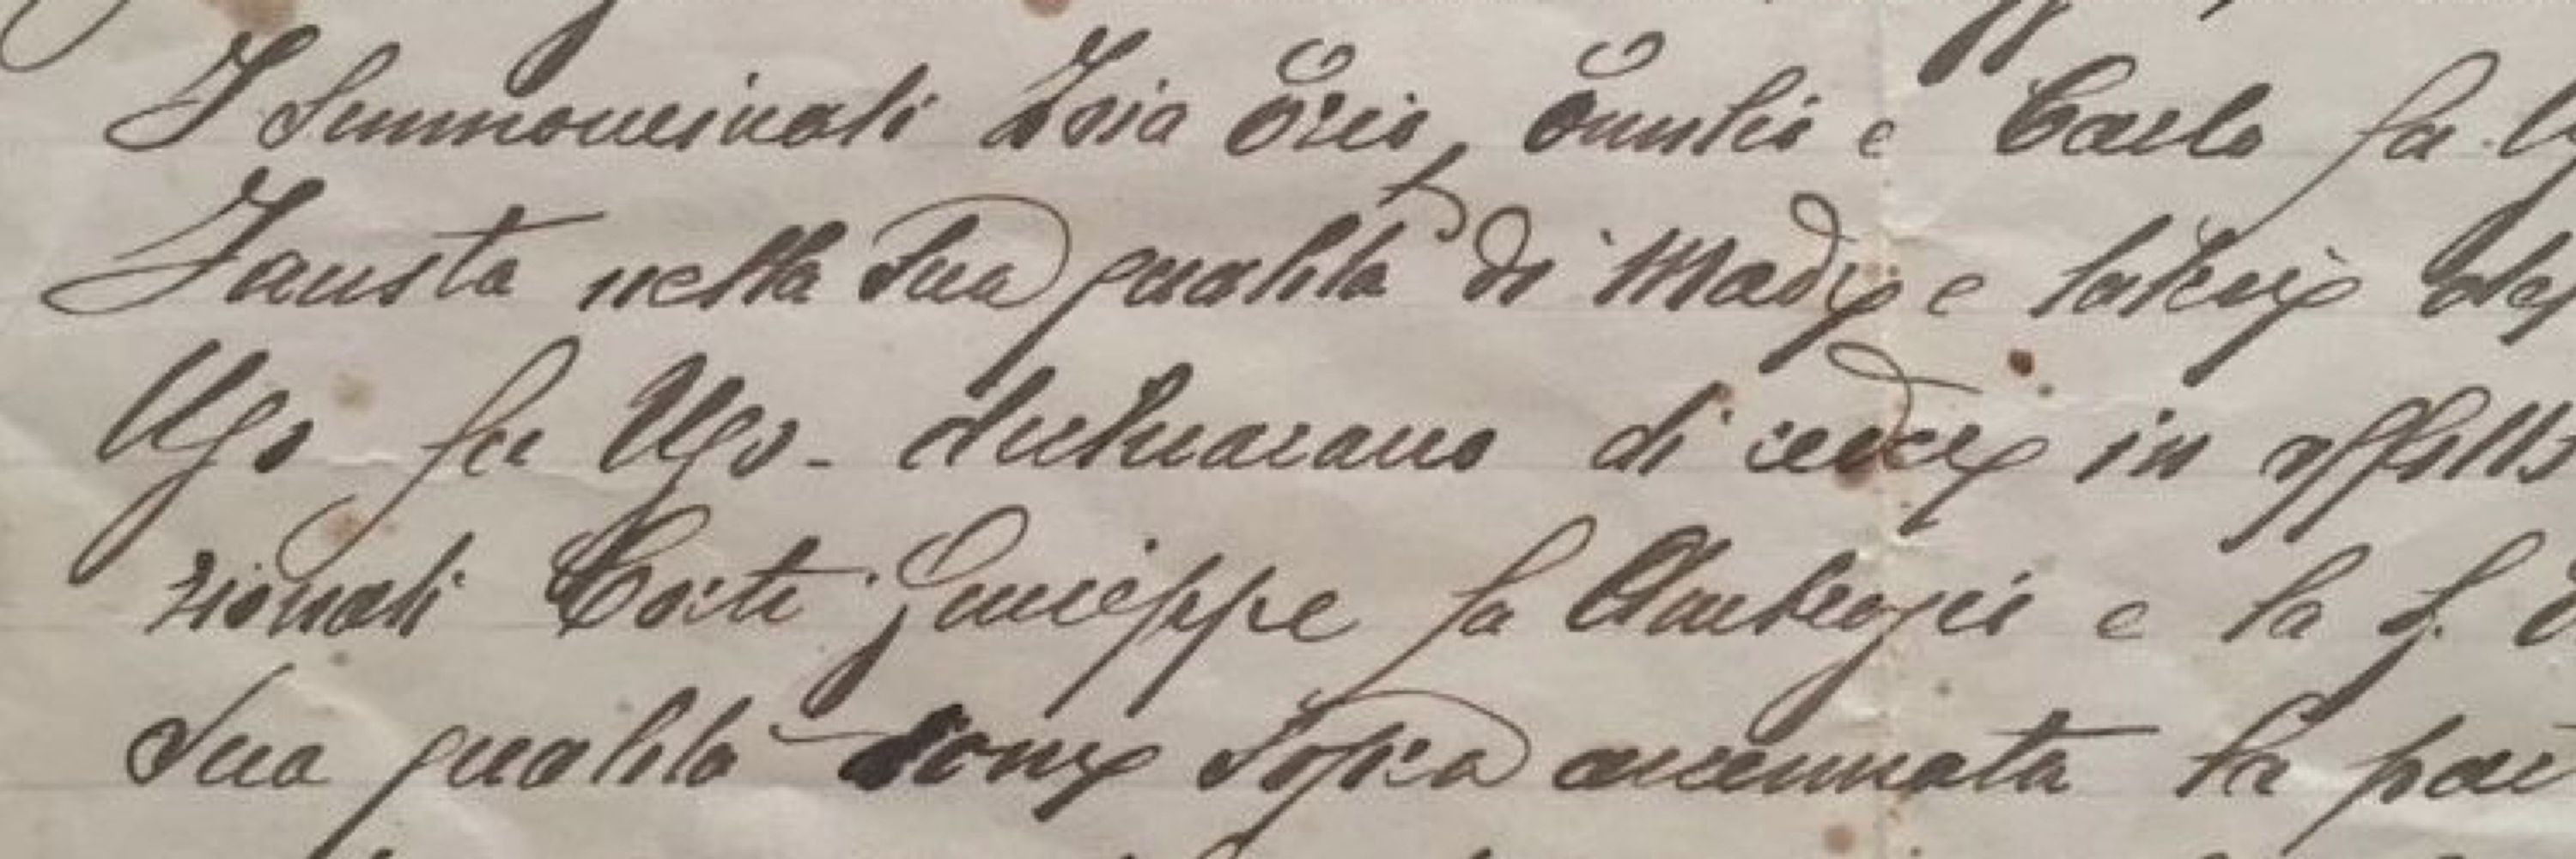 I summenzionati Zoia Ezio, Emilio e Carlo fu
Fausta nella sua qualità di Madre e tutrice
Ugo fu Ugo - dichiarano di cedere in affitto
zionati Corti Giuseppe fu Ambrogio e la S.
Sua qualità come sopra accennata la